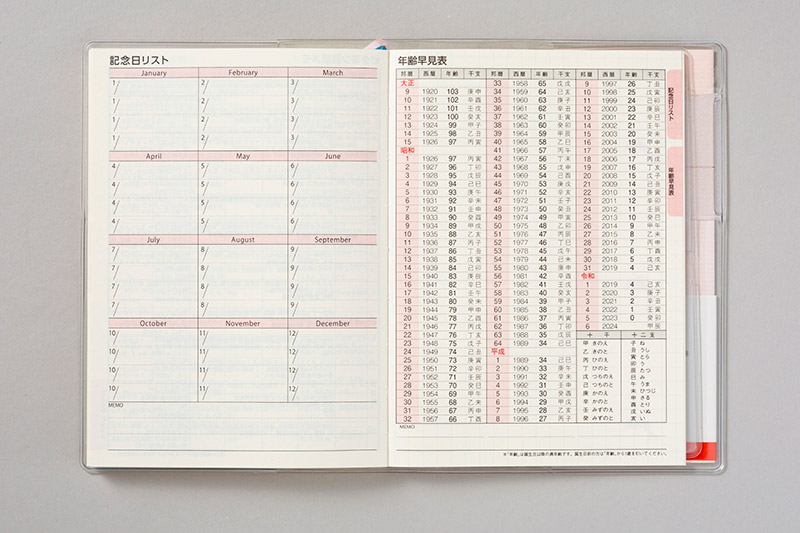 記念日リスト
January February March
1/ 2/ 3/
1/ 2/ 3/
1/ 2/ 3/
1/ 2/ 3/
April May June
4/ 5/ 6/
4/ 5/ 6/
4/ 5/ 6/
4/ 5/ 6/
July August September
7/ 8/ 9/
7/ 8/ 9/
7/ 8/ 9/
7/ 8/ 9/
October November December
10/ 11/ 12/
10/ 11/ 12/
10/ 11/ 12/
10/ 11/ 12/
MEMO
年齢早見表
邦暦 西暦 年齢 干支
大正
9 1920 103 庚申
10 1921 102 辛酉
11 1922 101 壬戌
12 1923 100 癸亥
13 1924 99 甲子
14 1925 98 乙丑
15 1926 97 丙寅
昭和
1 1926 97 丙寅
2 1927 96 丁卯
3 1928 95 戊辰
4 1929 94 己巳
5 1930 93 庚午
6 1931 92 辛未
7 1932 91 壬申
8 1933 90 癸酉
9 1934 89 甲戌
10 1935 88 乙亥
11 1936 87 丙子
12 1937 86 丁丑
13 1938 85 戊寅
14 1939 84 己卯
15 1940 83 庚辰
16 1941 82 辛巳
17 1942 81 壬午
18 1943 80 癸未
19 1944 79 甲申
20 1945 78 乙酉
21 1946 77 丙戌
22 1947 76 丁亥
23 1948 75 戊子
24 1949 74 己丑
25 1950 73 庚寅
26 1951 72 辛卯
27 1952 71 壬辰
28 1953 70 癸巳
29 1954 69 甲午
30 1955 68 乙未
31 1956 67 丙申
32 1957 66 丁酉
邦暦 西暦 年齢 干支
33 1958 65 戊戌
34 1959 64 己亥
35 1960 63 庚子
36 1961 62 辛丑
37 1962 61 壬寅
38 1963 60 癸卯
39 1964 59 甲辰
40 1965 58 乙巳
41 1966 57 丙午
42 1967 56 丁未
43 1968 55 戊申
44 1969 54 己酉
45 1970 53 庚戌
46 1971 52 辛亥
47 1972 51 壬子
48 1973 50 癸丑
49 1974 49 甲寅
50 1975 48 乙卯
51 1976 47 丙辰
52 1977 46 丁巳
53 1978 45 戊午
54 1979 44 己未
55 1980 43 庚申
56 1981 42 辛酉
57 1982 41 壬戌
58 1983 40 癸亥
59 1984 39 甲子
60 1985 38 乙丑
61 1986 37 丙寅
62 1987 36 丁卯
63 1988 35 戊辰
64 1989 34 己巳
平成
1 1989 34 己巳
2 1990 33 庚午
3 1991 32 辛未
4 1992 31 壬申
5 1993 30 癸酉
6 1994 29 甲戌
7 1995 28 乙亥
8 1996 27 丙子
邦暦 西暦 年齢 干支
9 1997 26 丁丑
10 1998 25 戊寅
11 1999 24 己卯
12 2000 23 庚辰
13 2001 22 辛巳
14 2002 21 壬午
15 2003 20 癸未
16 2004 19 甲申
17 2005 18 乙酉
18 2006 17 丙戌
19 2007 16 丁亥
20 2008 15 戊子
21 2009 14 己丑
22 2010 13 庚寅
23 2011 12 辛卯
24 2012 11 壬辰
25 2013 10 癸巳
26 2014 9 甲午
27 2015 8 乙未
28 2016 7 丙申
29 2017 6 丁酉
30 2018 5 戊戌
31 2019 4 己亥
令和
1 2019 4 己亥
2 2020 3 庚子
3 2021 2 辛丑
4 2022 1 壬寅
5 2023 0 癸卯
6 2024 甲辰
十干
甲 きのえ
乙 きのと
丙 ひのえ
丁 ひのと
戊 つちのえ
己 つちのと
庚 かのえ
辛 かのと
壬 みずのえ
癸 みずのと
十二支
子 ね
丑 うし
寅 とら
卯 う
辰 たつ
巳 み
午 うま
未 ひつじ
申 さる
酉 とり
戌 いぬ
亥 い
MEMO
※「年齢」は誕生日以降の満年齢です。誕生日前の方は「年齢」から1歳を引いてください。
記念日リスト
年齢早見表